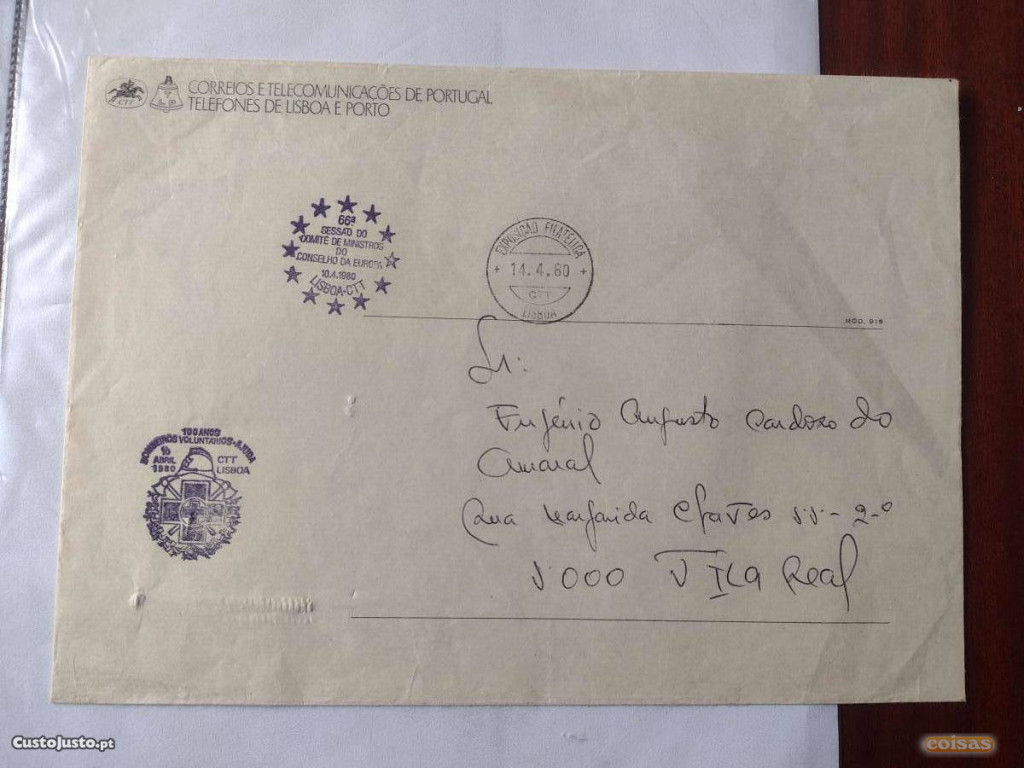 CORREIOS E TELECOMUNICAÇÕES DE PORTUGAL
TELEFONES DE LISBOA E PORTO
CTT
66ª
SESSÃO DO
COMITÉ DE MINISTROS
DO
CONSELHO DA EUROPA
10.4.1980
LISBOA-CTT
EXPOSIÇÃO FILATÉLICA
14.4.80
CTT
LISBOA
MOD. 916
Sr:
Eugénio Augusto Cardoso do
Amaral
Rua Margarida Chaves 55-2º
5000 Vila Real
100 ANOS
BOMBEIROS VOLUNTÁRIOS AJUDA
10 ABRIL 1980
CTT LISBOA
CustoJusto.pt
coisas